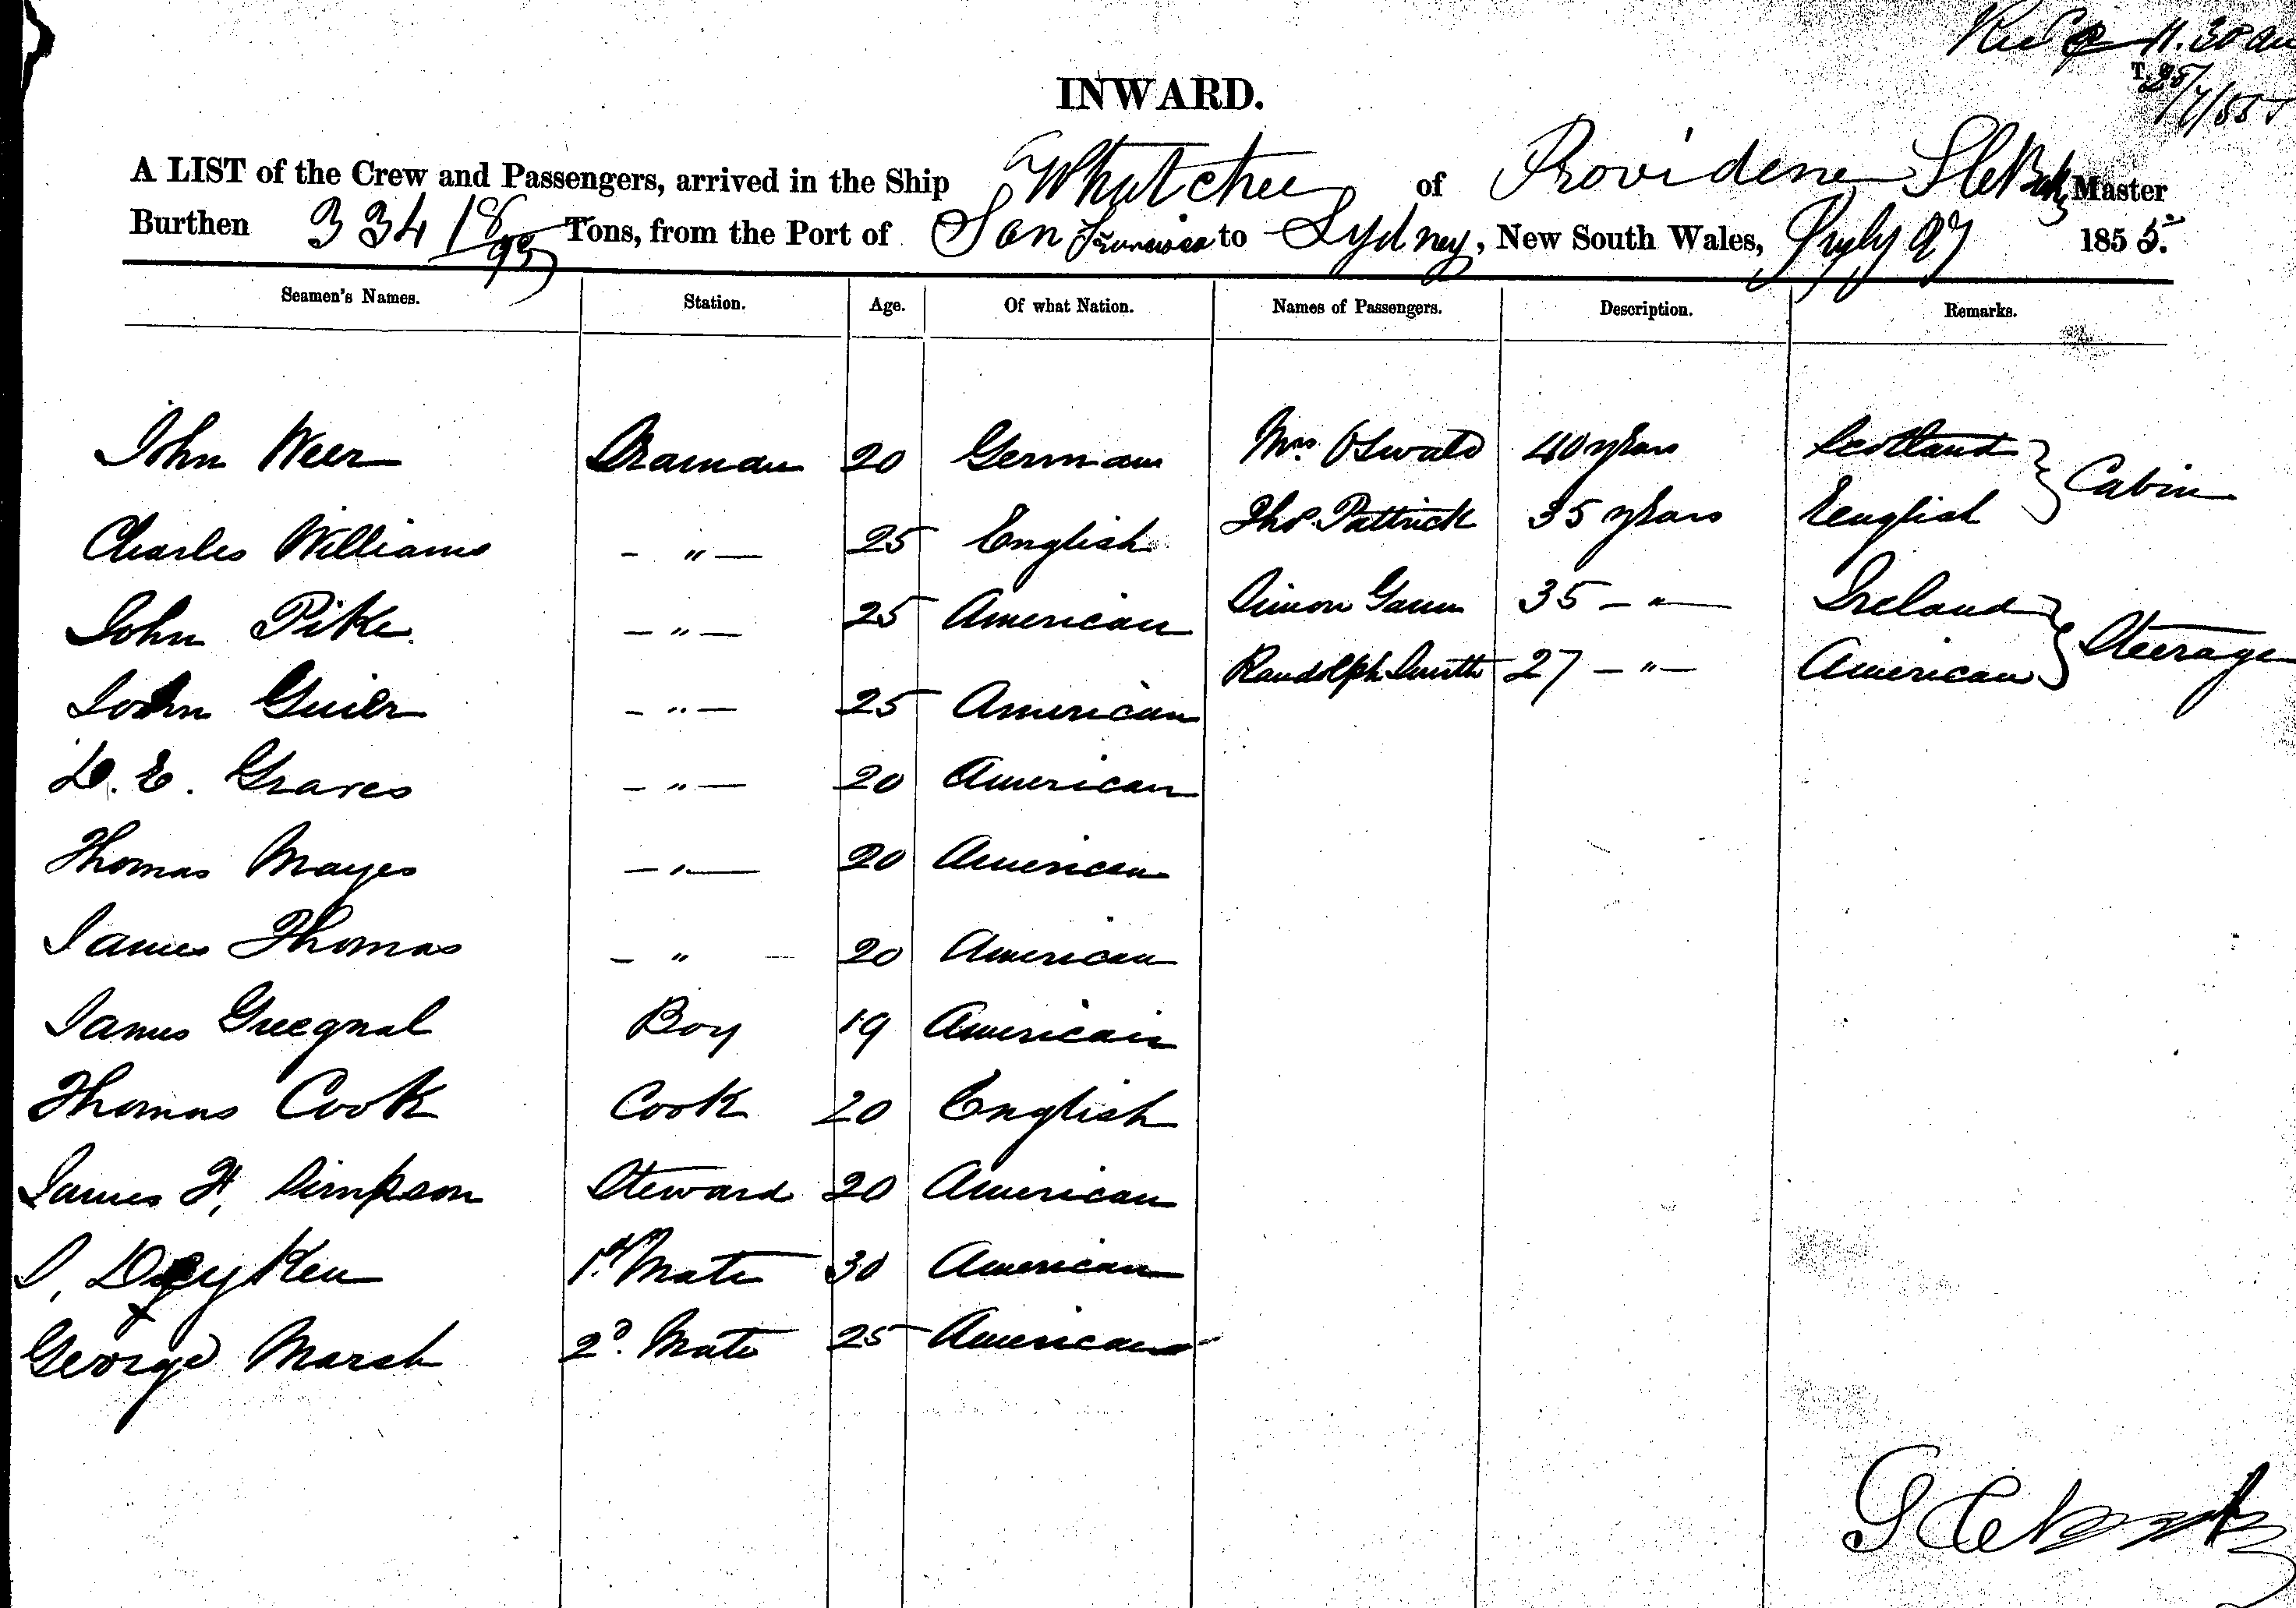 11.30 am
25/7/55
INWARD.
A LIST of the Crew and Passengers, arrived in the Ship Whatcheer of Providence Master
Burthen 334 18/95 Tons, from the Port of San Francisco to Sydney, New South Wales, July 27 1855.
Seamen's Names. Station. Age. Of what Nation. Names of Passengers. Description. Remarks.
John Weer Seaman 20 German Mrs Oswald 40 years Scotland Cabin
Charles Williams - " - 25 English Thos. Pattrick 35 years English
John Pike - " - 25 American Simon Gann 35 - " - Ireland Steerage
John Guier - " - 25 American Randolph Smith 27 - " - American
D. E. Graves - " - 20 American
Thomas Mayes - " - 20 American
James Thomas - " - 20 American
James Boy 19 American
Thomas Cook Cook 20 English
James H. Simpson Steward 20 American
1st Mate 30 American
George Marsh 2d. Mate 25 American